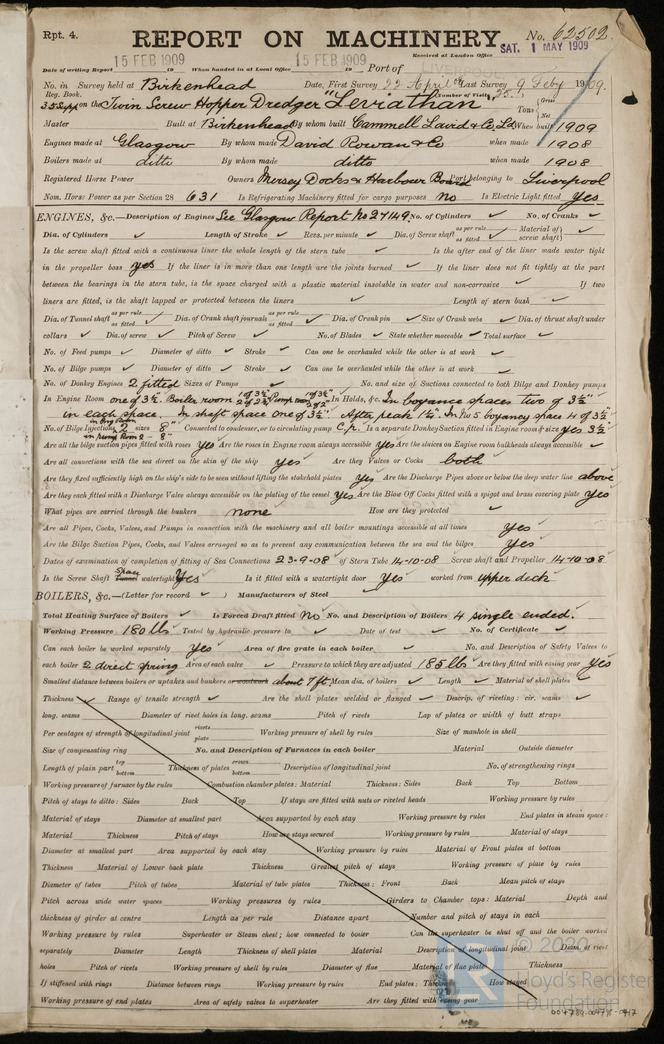 Rpt. 4. REPORT ON MACHINERY No. 62502
15 FEB 1909 15 FEB 1909 Received at London Office SAT. 1 MAY 1909
Date of writing Report 19 When handed in at Local Office 19 Port of
No. in Survey held at Birkenhead Date, First Survey 22 April 08 Last Survey 9 Feby 1909.
Reg. Book. (Number of Visits
35 Supp on the Twin Screw Hopper Dredger "Leviathan" Tons { Gross Net
Master Built at Birkenhead By whom built Cammell Laird & Co Ld When built 1909
Engines made at Glasgow By whom made David Rowan & Co when made 1908
Boilers made at ditto By whom made ditto when made 1908
Registered Horse Power Owners Mersey Docks & Harbour Board Port belonging to Liverpool
Nom. Horse Power as per Section 28 631 Is Refrigerating Machinery fitted for cargo purposes no Is Electric Light fitted yes
ENGINES, &c.—Description of Engines See Glasgow Report No 27149 No. of Cylinders No. of Cranks
Dia. of Cylinders Length of Stroke Revs. per minute Dia. of Screw shaft as per rule as fitted Material of screw shaft)
Is the screw shaft fitted with a continuous liner the whole length of the stern tube Is the after end of the liner made water tight
in the propeller boss yes If the liner is in more than one length are the joints burned If the liner does not fit tightly at the part
between the bearings in the stern tube, is the space charged with a plastic material insoluble in water and non-corrosive If two
liners are fitted, is the shaft lapped or protected between the liners Length of stern bush
Dia. of Tunnel shaft as per rule as fitted Dia. of Crank shaft journals as per rule as fitted Dia. of Crank pin Size of Crank webs Dia. of thrust shaft under
collars Dia. of screw Pitch of Screw No. of Blades State whether moveable Total surface
No. of Feed pumps Diameter of ditto Stroke Can one be overhauled while the other is at work
No. of Bilge pumps Diameter of ditto Stroke Can one be overhauled while the other is at work
No. of Donkey Engines 2 fitted Sizes of Pumps No. and size of Suctions connected to both Bilge and Donkey pumps
In Engine Room one of 3½" Boiler room 1 of 3½" 2 of 2½" Pump room In Holds, &c. In buoyance spaces two of 3½"
in each space. In shaft space one of 3½" After peak 1½". In No 5 boyancy space 4 of 3½"
No. of Bilge Injections 2 sizes 8" Connected to condenser, or to circulating pump C.p. Is a separate Donkey Suction fitted in Engine room & size yes 3½"
Are all the bilge suction pipes fitted with roses yes Are the roses in Engine room always accessible yes Are the sluices on Engine room bulkheads always accessible
Are all connections with the sea direct on the skin of the ship yes Are they Valves or Cocks both
Are they fixed sufficiently high on the ship's side to be seen without lifting the stokehold plates yes Are the Discharge Pipes above or below the deep water line above
Are they each fitted with a Discharge Valve always accessible on the plating of the vessel yes Are the Blow Off Cocks fitted with a spigot and brass covering plate yes
What pipes are carried through the bunkers none How are they protected
Are all Pipes, Cocks, Valves, and Pumps in connection with the machinery and all boiler mountings accessible at all times yes
Are the Bilge Suction Pipes, Cocks, and Valves arranged so as to prevent any communication between the sea and the bilges yes
Dates of examination of completion of fitting of Sea Connections 23-9-08 of Stern Tube 14-10-08 Screw shaft and Propeller 14-10-08
Is the Screw Shaft Space Tunnel watertight yes Is it fitted with a watertight door yes worked from upper deck
BOILERS, &c.—(Letter for record ) Manufacturers of Steel
Total Heating Surface of Boilers Is Forced Draft fitted no No. and Description of Boilers 4 single ended.
Working Pressure 180 lbs Tested by hydraulic pressure to Date of test No. of Certificate
Can each boiler be worked separately yes Area of fire grate in each boiler No. and Description of Safety Valves to
each boiler 2 direct spring Area of each valve Pressure to which they are adjusted 185 lbs Are they fitted with easing gear yes
Smallest distance between boilers or uptakes and bunkers or woodwork about 7 ft Mean dia. of boilers Length Material of shell plates
Thickness Range of tensile strength Are the shell plates welded or flanged Descrip. of riveting: cir. seams
long. seams Diameter of rivet holes in long. seams Pitch of rivets Lap of plates or width of butt straps
Per centages of strength of longitudinal joint rivets plate Working pressure of shell by rules Size of manhole in shell
Size of compensating ring No. and Description of Furnaces in each boiler Material Outside diameter
Length of plain part top bottom Thickness of plates crown bottom Description of longitudinal joint No. of strengthening rings
Working pressure of furnace by the rules Combustion chamber plates: Material Thickness: Sides Back Top Bottom
Pitch of stays to ditto: Sides Back Top If stays are fitted with nuts or riveted heads Working pressure by rules
Material of stays Diameter at smallest part Area supported by each stay Working pressure by rules End plates in steam space:
Material Thickness Pitch of stays How are stays secured Working pressure by rules Material of stays
Diameter at smallest part Area supported by each stay Working pressure by rules Material of Front plates at bottom
Thickness Material of Lower back plate Thickness Greatest pitch of stays Working pressure of plate by rules
Diameter of tubes Pitch of tubes Material of tube plates Thickness: Front Back Mean pitch of stays
Pitch across wide water spaces Working pressures by rules Girders to Chamber tops: Material Depth and
thickness of girder at centre Length as per rule Distance apart Number and pitch of stays in each
Working pressure by rules Superheater or Steam chest; how connected to boiler Can the superheater be shut off and the boiler worked
separately Diameter Length Thickness of shell plates Material Description of longitudinal joint Diam. of rivet
holes Pitch of rivets Working pressure of shell by rules Diameter of flue Material of flue plates Thickness
If stiffened with rings Distance between rings Working pressure by rules End plates: Thickness How stayed
Working pressure of end plates Area of safety valves to superheater Are they fitted with easing gear
© 2020
Lloyd's Register
Foundation
004789-004798-0417